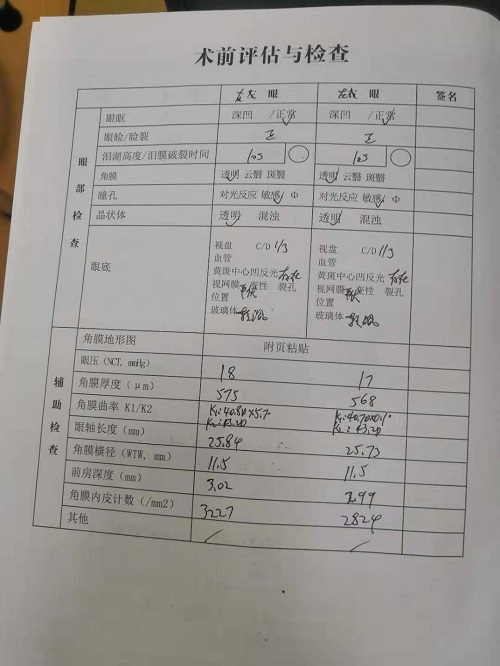 术前评估与检查
眼 眼 签名
眼部检查
眼眶 深凹 /正常 深凹 /正常
眼睑/睑裂 正 正
泪湖高度/泪膜破裂时间 10s 10s
角膜 透明 云翳 斑翳 透明 云翳 斑翳
瞳孔 对光反应 敏感 Φ 对光反应 敏感 Φ
晶状体 透明 混浊 透明 混浊
眼底
视盘 C/D 1/3 视盘 C/D 1/3
血管 血管
黄斑中心凹反光 存在 黄斑中心凹反光 存在
视网膜 变性 裂孔 视网膜 变性 裂孔
位置 位置
玻璃体 玻璃体
辅助检查
角膜地形图 附页粘贴
眼压(NCT, mmHg) 18 17
角膜厚度(μm) 575 568
角膜曲率 K1/K2 K1:40.80×5.7 K1:40.70
K2:43.20 K2:43.20
眼轴长度(mm) 25.84 25.73
角膜横径(WTW, mm) 11.5 11.5
前房深度(mm) 3.02 2.99
角膜内皮计数(/mm2) 3227 2824
其他 / /